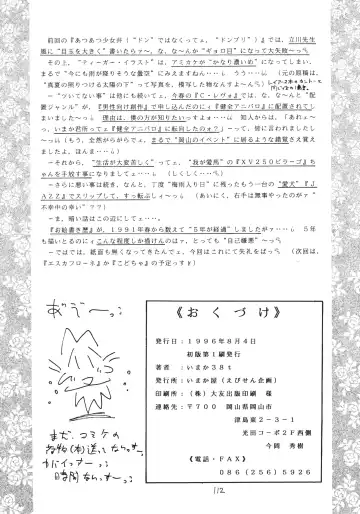 前回の『あつあつ少女丼（“ドン”ではなくってェ、“ドンブリ”）』では、立川先生
風に“目玉を大きく”書いたらァ〜っ、な、な〜んか“ギョロ目”になって大失敗〜っ
その上、“ティーガー・イラスト”は、アミカケが“かなり濃いめ”になってしまい、
まるで“今にも雨が降りそうな曇空”にみえますねん‥‥ うう‥‥ (元の原稿は、
“真夏の照りつける太陽の下”って写真を、模写した物なんすよ〜ん
－“ツいてない事”は他にも続いてェ、今春の『C・レヴォ』では、な、な〜んと“配
置ジャンル”が、『男性向け創作』で申し込んだのにィ『健全アニパロ』に配置されて
しまいました〜っ 理由は、僕の方が知りたいっすよォ‥‥ 知人からは、「あれェ〜
っ、いまか君所ってェ『健全アニパロ』に転向したのォ？」－って、皆に言われましたし
〜っ(もう、全然がらがらで、まるで“岡山のイベント”に居るような錯覚さえ覚え
ましたよ、ほんま‥‥)
－それから、“生活が大変苦しく”ってェ、“我が愛馬”の『XV250ビラーゴ』ちゃ
んを手放す事になりましてェ‥‥ (しくしくしくっ
－さらに悪い事は続き、なんと、丁度“梅雨入り日”に残ったもう一台の“愛犬”『J
AZZ』でスリップして、すっ転ぶしィ〜っ (あいにく、右手は無事やったのがァ“
不幸中の幸い”？？)
－ま、暗い話はこの辺にしてェ‥‥
『お絵書き歴』が、1991年春から数えて“5年が経過”しましたがァ‥‥ 5年
も描いとるのにィこんな程度しか描けんのはァ、とっても“自己嫌悪”〜っ
－ではでは、紙面も無くなってきたんでェ、今回はこれにて失礼をばっ (次回は、
『エスカフローネ』か『こどちゃ』の予定っす)
あぞ〜っ
まだ、コミケの
荷物(本)送ってないっすー
時間ないっすー
《おくづけ》
発行日：1996年8月4日
初版第1刷発行
著者：いまか38t
発行所：いまか屋（えびせん企画）
印刷所：（株）大友出版印刷 様
連絡先：〒700 岡山県岡山市
津島東2－3－1
光田コーポ2F西側
今岡 秀樹
《電話・FAX》
086（256）5926
112